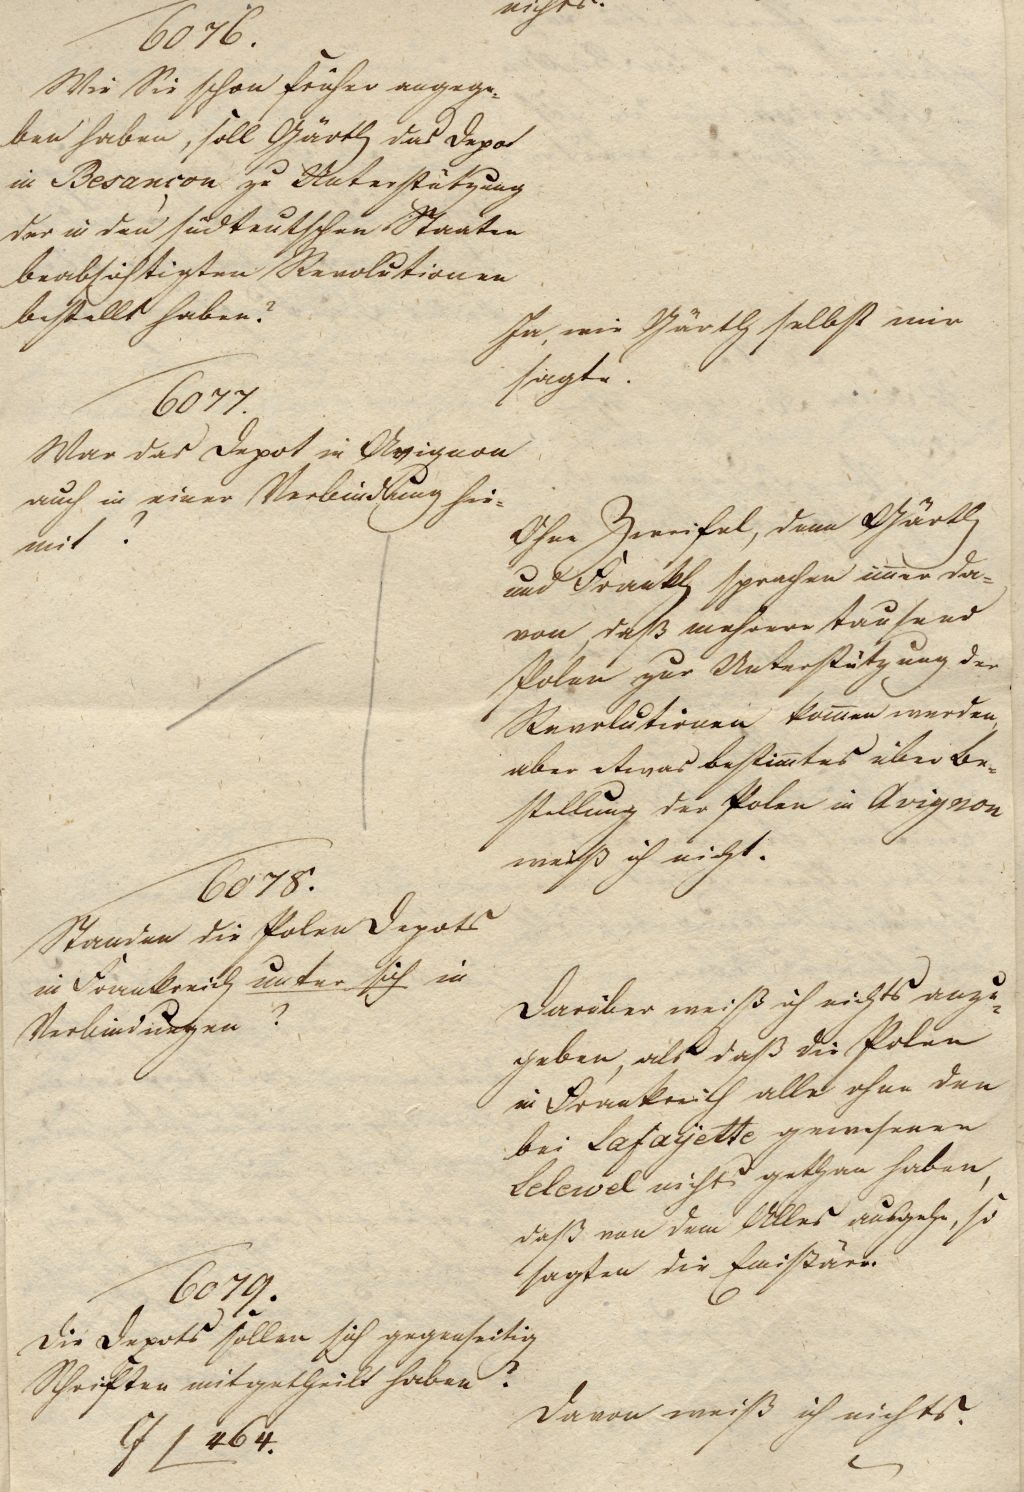 nichts.
6076.
Wie Sie schon früher angege-
ben haben, soll Gärth das Depot
in Besançon zu Unterstützung
der in den südteutschen Staaten
beabsichtigten Revolutionen
bestellt haben?
Ja, wie Gärth selbst mir
sagte.
6077.
War das Depot in Avignon
auch in einer Verbindung hie-
mit?
Ohne Zweifel, denn Gärth
und Frankh sprachen immer da-
von, daß mehrere tausend
Polen zur Unterstützung der
Revolutionen kommen werden,
aber etwas bestimmtes über Be-
stellung der Polen in Avignon
weiß ich nicht.
6078.
Standen die Polen Depots
in Frankreich unter sich in
Verbindungen?
Darüber weiß ich nichts anzu-
geben, als daß die Polen
in Frankreich alle ohne den
bei Lafayette gewesenen
Lelewel nichts gethan haben,
daß von dem Alles ausgehe, so
sagten die Emissäre.
6079.
Die Depots sollen sich gegenseitig
Schriften mitgetheilt haben?
464.
Davon weiß ich nichts.